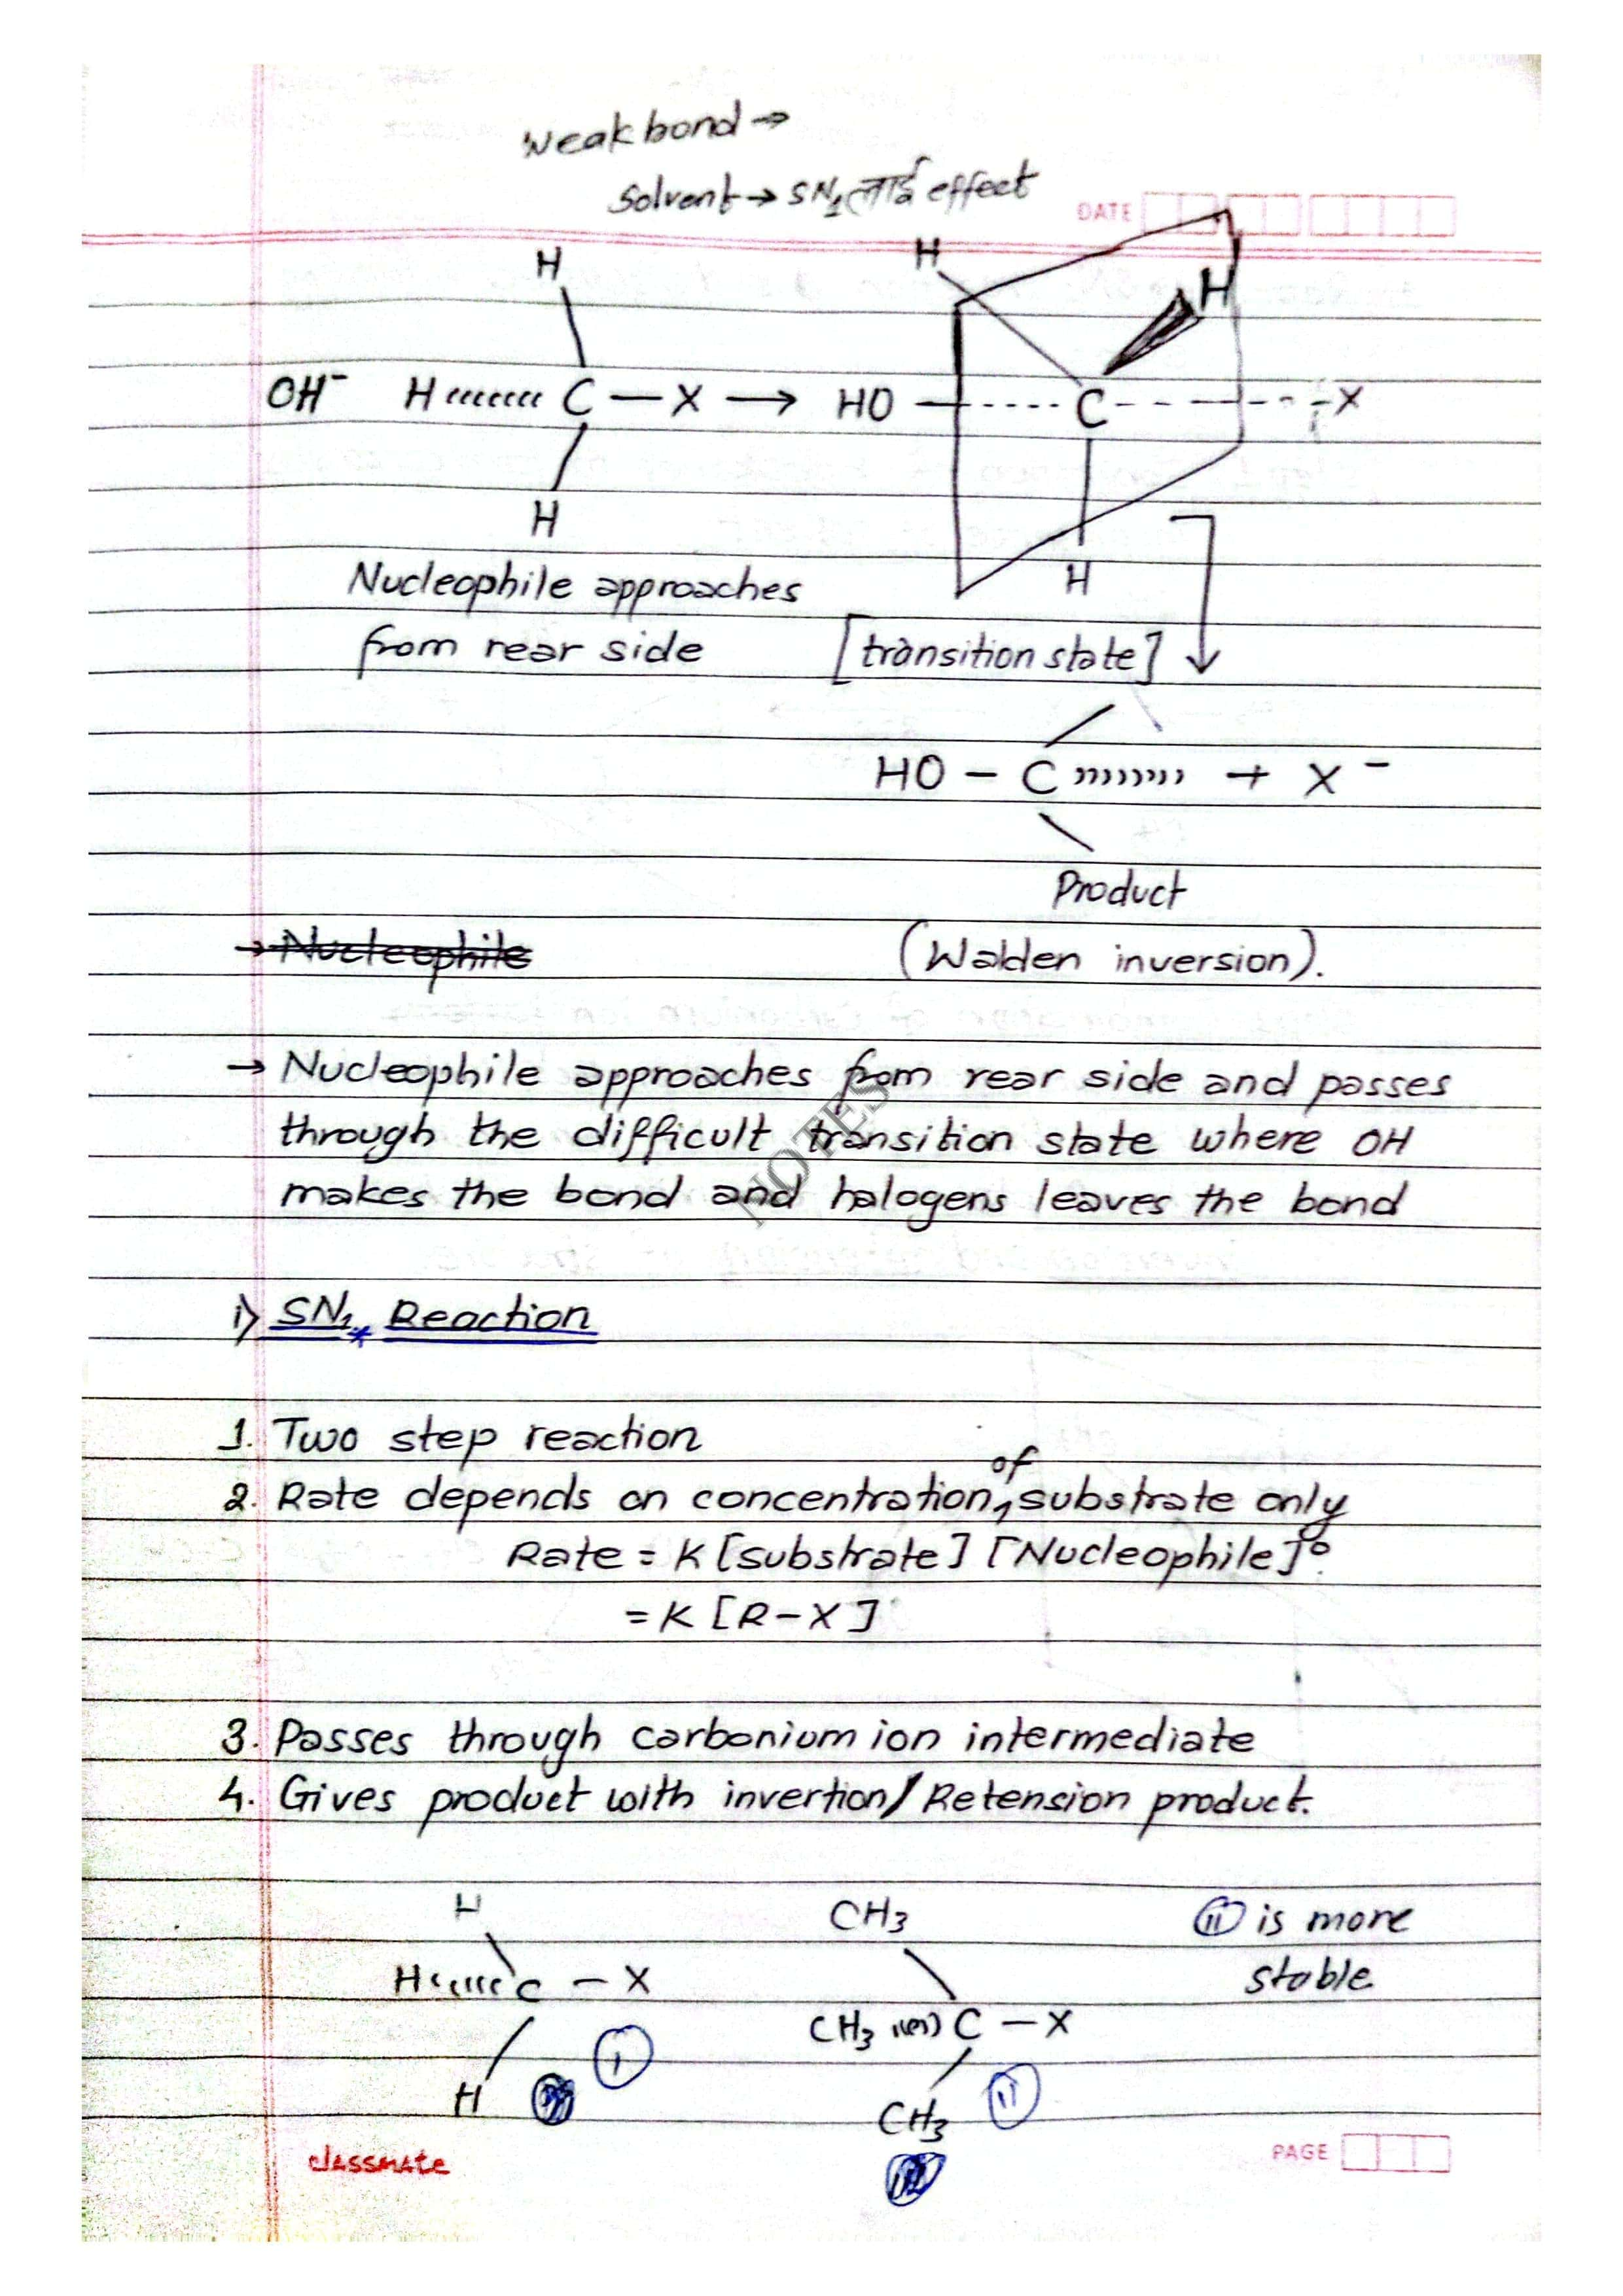 Weak bond →
Solvent → SN₁ लाई effect
DATE
H
H
H
OH⁻ H C — X → HO C X
H
H
Nucleophile approaches
from rear side [transition state]
HO — C + X⁻
Product
→ Nucleophile (Walden inversion).
→ Nucleophile approaches from rear side and passes
through the difficult transition state where OH
makes the bond and halogens leaves the bond
NOTES
i) SN₁ * Reaction
1. Two step reaction
2. Rate depends on concentration of substrate only
Rate = K [substrate] [Nucleophile]⁰
= K [R-X]
3. Passes through carbonium ion intermediate
4. Gives product with invertion/Retension product.
H CH₃ (ii) is more
H C — X stable
CH₃ C — X
(i)
H (ii)
CH₃
classmate PAGE